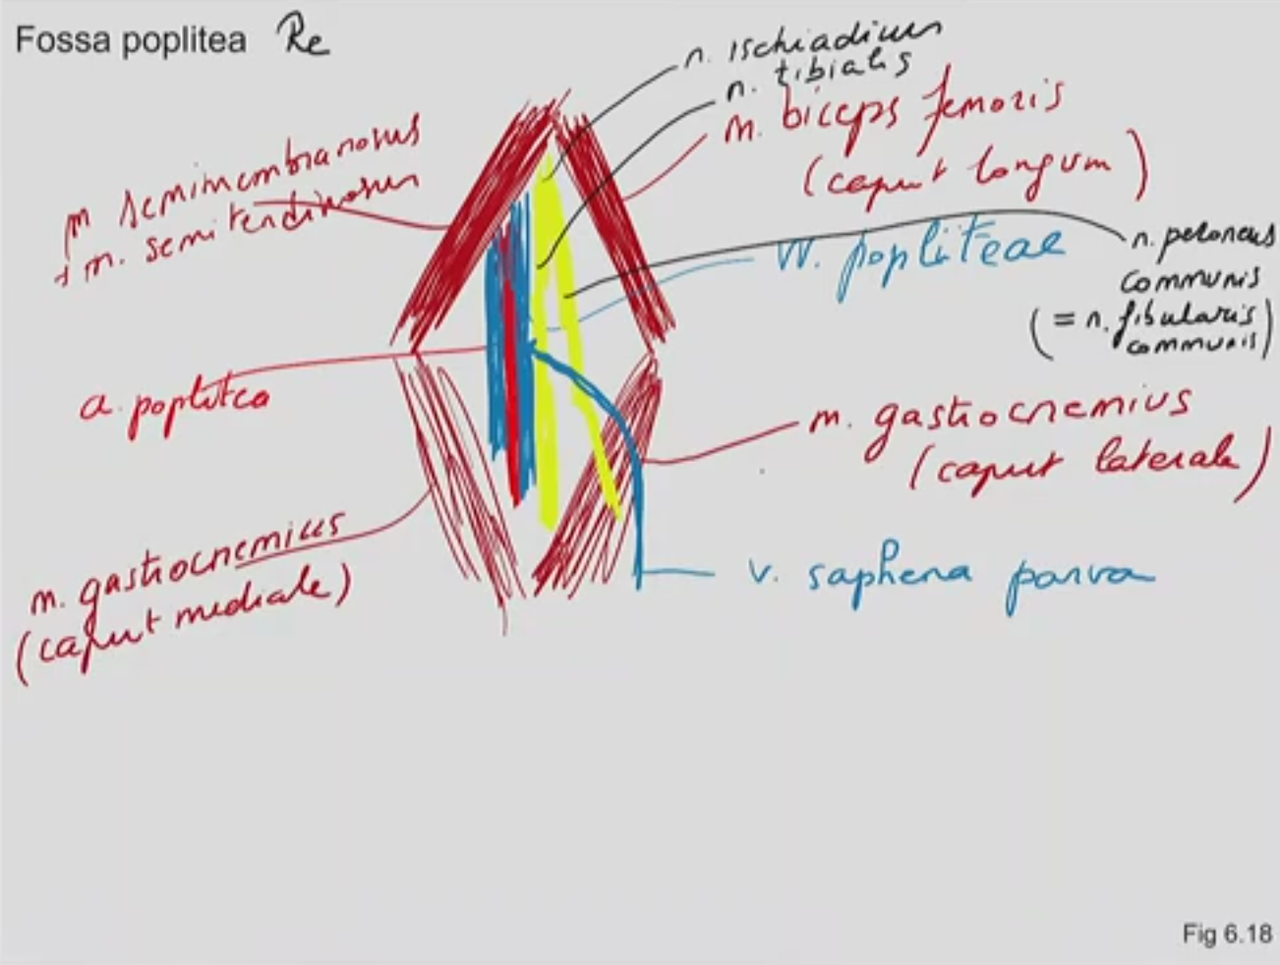 Fossa poplitea Re
n. ischiadicus
n. tibialis
m. biceps femoris
(caput longum)
m semimembranosus
+ m. semitendinosus
n. peroneus
communis
(= n. fibularis
communis)
VV. popliteae
a. poplitea
m. gastrocnemius
(caput laterale)
m. gastrocnemius
(caput mediale)
v. saphena parva
Fig 6.18